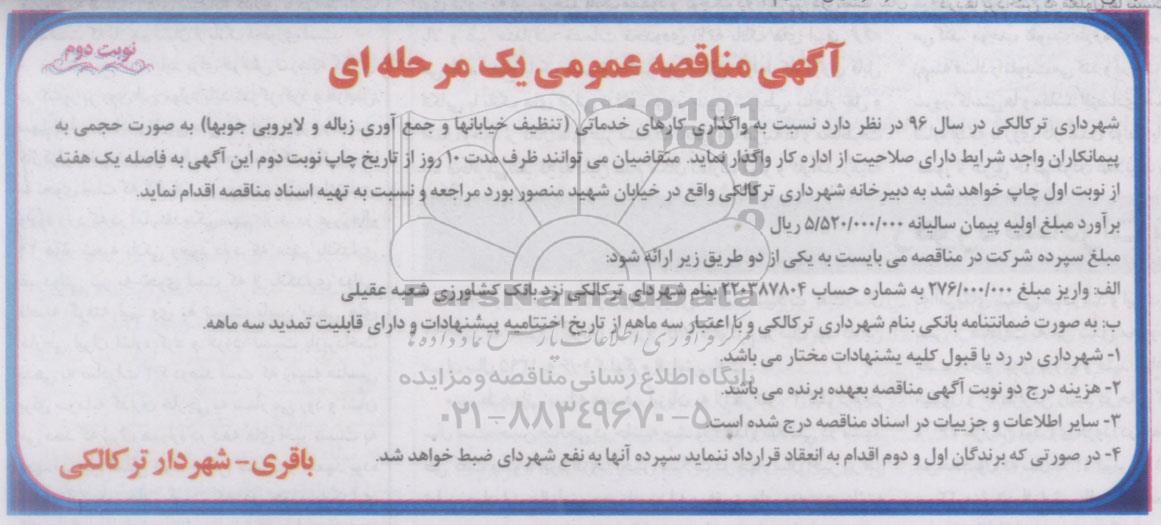 نوبت دوم
آگهی مناقصه عمومی یک مرحله ای
شهرداری ترکالکی در سال ۹۶ در نظر دارد نسبت به واگذاری کارهای خدماتی (تنظیف خیابانها و جمع آوری زباله و لایروبی جویها) به صورت حجمی به
پیمانکاران واجد شرایط دارای صلاحیت از اداره کار واگذار نماید. متقاضیان می توانند ظرف مدت ۱۰ روز از تاریخ چاپ نوبت دوم این آگهی به فاصله یک هفته
از نوبت اول چاپ خواهد شد به دبیرخانه شهرداری ترکالکی واقع در خیابان شهید منصور بورد مراجعه و نسبت به تهیه اسناد مناقصه اقدام نماید.
برآورد مبلغ اولیه پیمان سالیانه ۵/۵۲۰/۰۰۰/۰۰۰ ریال
مبلغ سپرده شرکت در مناقصه می بایست به یکی از دو طریق زیر ارائه شود:
الف: واریز مبلغ ۲۷۶/۰۰۰/۰۰۰ به شماره حساب ۲۲۰۳۸۷۸۰۴ بنام شهردای ترکالکی نزد بانک کشاورزی شعبه عقیلی
ParsNamadData
ب: به صورت ضمانتنامه بانکی بنام شهرداری ترکالکی و با اعتبار سه ماهه از تاریخ اختتامیه پیشنهادات و دارای قابلیت تمدید سه ماهه.
مرکز فرآوری اطلاعات پارس نماد داده ها
۱- شهرداری در رد یا قبول کلیه پشنهادات مختار می باشد.
پایگاه اطلاع رسانی مناقصه و مزایده
۲- هزینه درج دو نوبت آگهی مناقصه بعهده برنده می باشد.
۰۲۱-۸۸۳۴۹۶۷۰-۵
۳- سایر اطلاعات و جزییات در اسناد مناقصه درج شده است.
۴- در صورتی که برندگان اول و دوم اقدام به انعقاد قرارداد ننماید سپرده آنها به نفع شهرداری ضبط خواهد شد.
باقری - شهردار ترکالکی